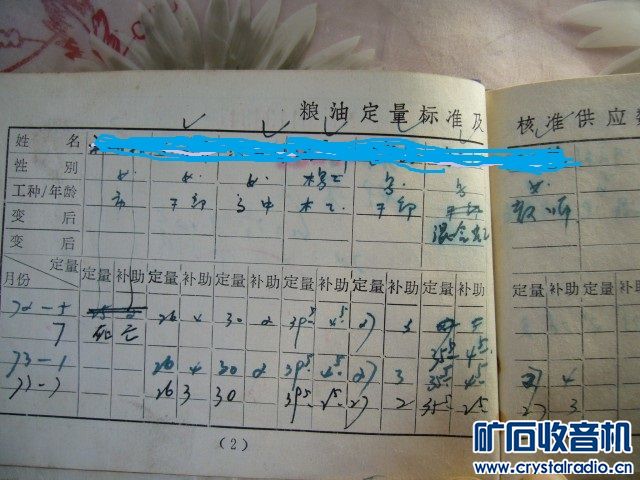 粮油定量标准及 核准供应
姓名
性别 女 女 女 女
工种/年龄 干部 高中 木工 干部 教师
变后 混合
变后
定量
月份 定量 补助 定量 补助 定量 补助 定量 补助 定量 补助 定量 定量 补助 定量
72-5 26 4 30 2 39.5 4.5 27 3
7 死亡 35.5 4.5
73-1 26 4 30 2 39.5 4.5 27 3 35.5 4.5 27 4
73-3 26 3 30 39.5 2.5 27 2 35.5 2.5 27 3
(2)
矿石收音机
www.crystalradio.cn